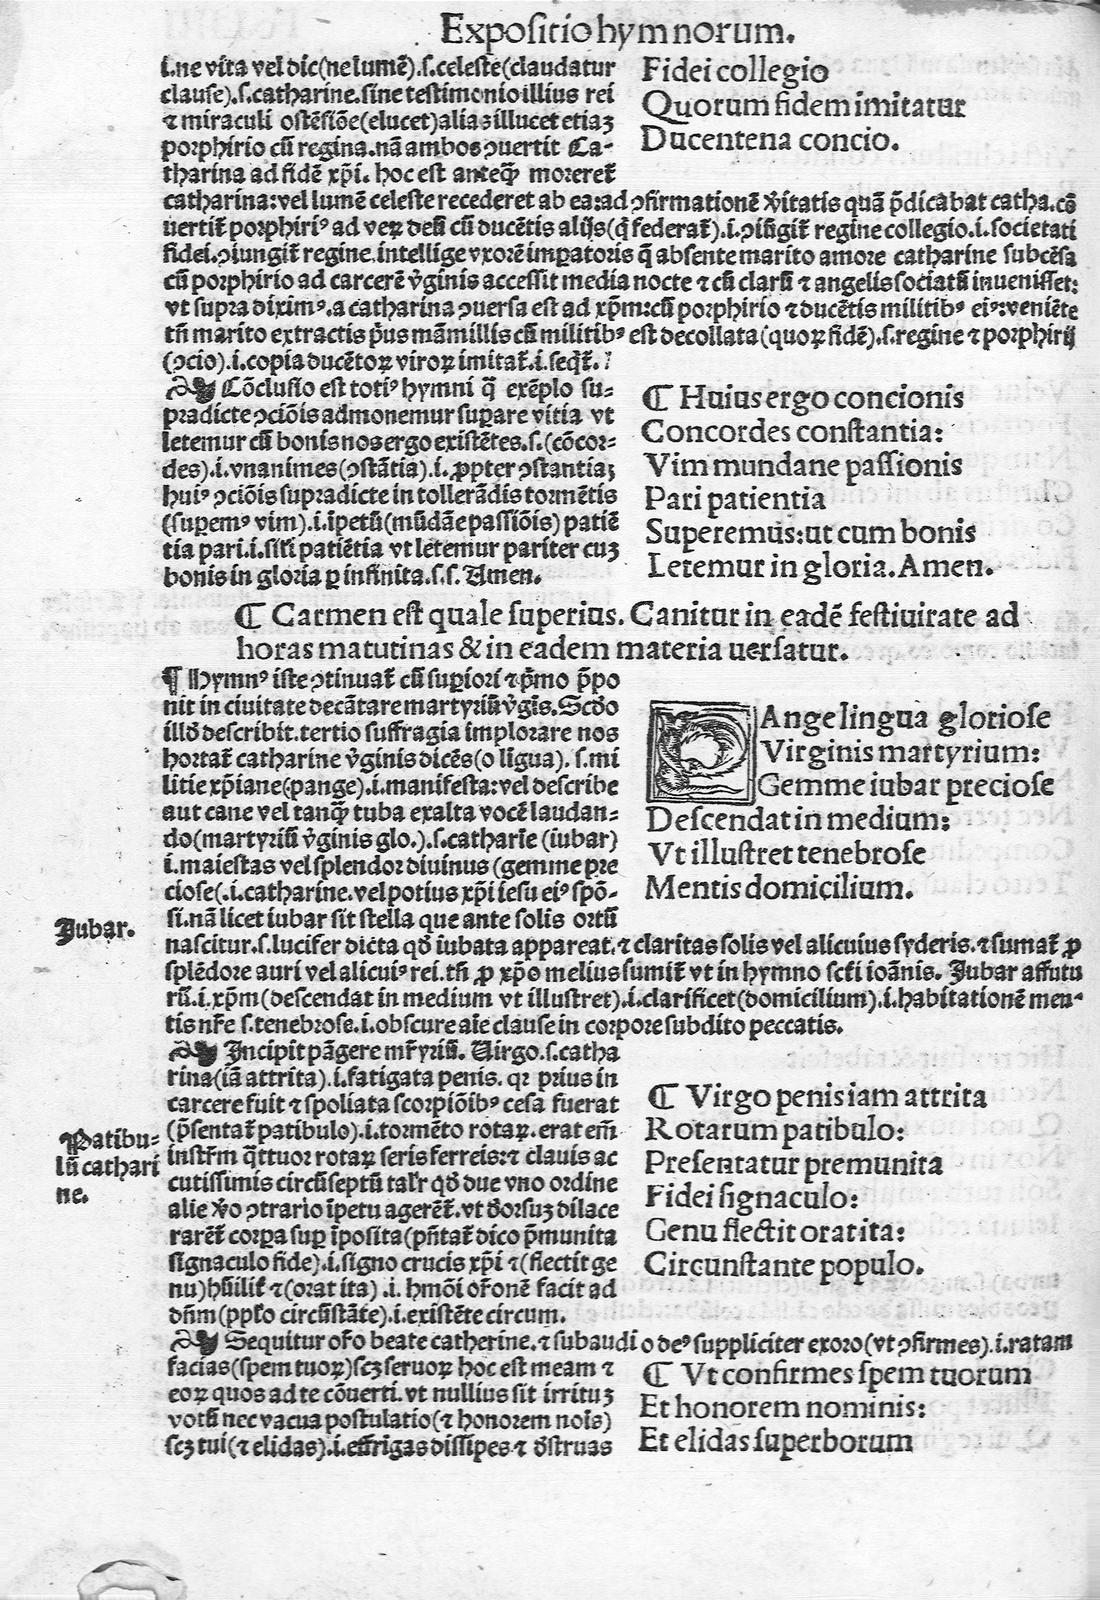 Expositio hymnorum.
i.ne vita vel dic(ne lumē).s.celeste(claudatur
clause).s.catharine.sine testimonio illius rei
⁊ miraculi ostēsiōe(elucet)alias illucet etiaꝫ
porphirio cū regina.nā ambos ꝯuertit Ca-
tharina ad fidē xp̄i. hoc est anteq̄ꝫ moreret̄
Fidei collegio
Quorum fidem imitatur
Ducentena concio.
catharina:vel lumē celeste recederet ab ea:ad ꝯfirmationē v̄itatis quā p̄dicabat catha.cō
uertit porphiriꝰ ad veꝝ deū cū ducētis alijs(q̄ federat̄).i.ꝯiūgit̄ regine collegio.i.societati
fidei.ꝯiungit̄ regine.intellige vxorē imꝑatoris q̄ absente marito amore catharine subcēsa
cū porphirio ad carcerē v̄ginis accessit media nocte ⁊ cū clarū ⁊ angelis sociatū inuenisset:
vt supra diximꝰ.a catharina ꝯuersa est ad xp̄m:cū porphirio ⁊ ducētis militibꝰ eiꝰ:veniēte
tn̄ marito extractis p̄us māmillis cū militibꝰ est decollata(quoꝝ fidē).s.regine ⁊ porphirij
(ꝯcio).i.copia ducētoꝝ viroꝝ imitat̄.i.seq̄t̄.
Cōclusio est totiꝰ hymni q̄ exēplo su-
pradicte ꝯciōis admonemur suꝑare vitia vt
letemur cū bonis nos ergo existētes.s.(cōcor-
des).i.vnanimes(ꝯstātia).i.ꝓpter ꝯstantiaꝫ
huiꝰ ꝯciōis supradicte in tollerādis tormētis
(suꝑemꝰ vim).i.īpetū(mūdāe passiōis) patiē
tia pari.i.sili patiētia vt letemur pariter cuꝫ
bonis in gloria ꝑ infinita.s.s. Amen.
¶ Huius ergo concionis
Concordes constantia:
Vim mundane passionis
Pari patientia
Superemus:ut cum bonis
Letemur in gloria. Amen.
¶ Carmen est quale superius. Canitur in eadē festiuitate ad
horas matutinas & in eadem materia uersatur.
¶ Hymnꝰ iste ꝯtinuat̄ cū suꝑiori ⁊ p̄mo p̄po
nit in ciuitate decātare martyriū v̄gīs. Scd̄o
illd̄ describit.tertio suffragia implorare nos
hortat̄ catharine v̄ginis dicēs(o ligua). s.mi
litie xp̄iane(pange).i.manifesta:vel describe
aut cane vel tanq̄ꝫ tuba exalta vocē laudan-
do(martyriū v̄ginis glo.).s.catharīe (iubar)
i.maiestas vel splendor diuinus (gemme pre
ciose(.i.catharine.vel potius xp̄i iesu eiꝰ spō-
si.nā licet iubar sit stella que ante solis ortū
PAnge lingua gloriose
Virginis martyrium:
Gemme iubar preciose
Descendat in medium:
Vt illustret tenebrose
Mentis domicilium.
Jubar.
nascitur.s.lucifer dicta qd̄ iubata appareat.⁊ claritas solis vel alicuius syderis.⁊ sumat̄ ꝓ
splēdore auri vel alicuiꝰ rei.tn̄ ꝓ xp̄o melius sumit̄ vt in hymno scti ioānis. Jubar affutu
rū.i.xp̄m(descendat in medium vt illustret).i.clarificet(domicilium).i.habitationē men-
tis nr̄e s.tenebrose.i.obscure aīe clause in corpore subdito peccatis.
Incipit pāgere mr̄yriū. Virgo.s.catha
rina(iā attrita).i.fatigata penis. qr prius in
carcere fuit ⁊ spoliata scorpiōibꝰ cesa fuerat
(p̄sentat̄ patibulo).i.tormēto rotaꝝ.erat em̄
instr̄m q̄ttuor rotaꝝ seris ferreis:⁊ clauis ac
cutissimis circūseptū talr̄ qd̄ due vno ordine
alie v̄o ꝯtrario īpetu agerēt̄.vt d̄orsuꝫ dilace
rarēt̄ corpa suꝑ īposita(pn̄tat̄ dico p̄munita
signaculo fide).i.signo crucis xp̄i ⁊(flectit ge
nu)hūilit̄ ⁊(orat ita) .i. hmōi or̄onē facit ad
dn̄m(pplo circūstāte).i.existēte circum.
Patibu-
lū cathari
ne.
¶ Virgo penis iam attrita
Rotarum patibulo:
Presentatur premunita
Fidei signaculo:
Genu flectit orat ita:
Circunstante populo.
Sequitur or̄o beate catherine.⁊ subaudi o deꝰ suppliciter exoro(vt ꝯfirmes).i.ratam
facias(spem tuoꝝ)scꝫ seruoꝝ hoc est meam ⁊
eoꝝ quos ad te cōuerti.vt nullius sit irrituꝫ
votū nec vacua postulatio(⁊ honorem nois)
scꝫ tui(⁊ elidas).i.effrigas dissipes ⁊ d̄struas
¶ Vt confirmes spem tuorum
Et honorem nominis:
Et elidas superborum